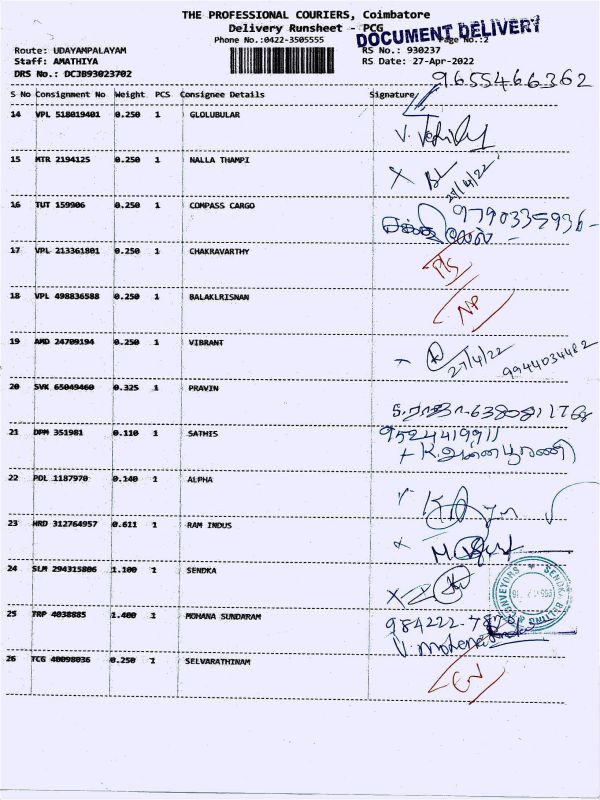 THE PROFESSIONAL COURIERS, Coimbatore
Delivery Runsheet - PCG
DOCUMENT DELIVERY
Phone No.:0422-3505555
Page No.:2
Route: UDAYAMPALAYAM
RS No.: 930237
Staff: AMATHIYA
RS Date: 27-Apr-2022
DRS No.: DCJB93023702
9655466362
S No Consignment No Weight PCS Consignee Details Signature
14 VPL 518019401 0.250 1 GLOLUBULAR
V.
15 MTR 2194125 0.250 1 NALLA THAMPI
27/4/22
16 TUT 159906 0.250 1 COMPASS CARGO
9790335936-
17 VPL 213361801 0.250 1 CHAKRAVARTHY
18 VPL 498836588 0.250 1 BALAKLRISNAN
NP
19 AMD 24709194 0.250 1 VIBRANT
27/4/22 9944034482
20 SVK 65049460 0.325 1 PRAVIN
21 DPM 351981 0.110 1 SATHIS
9524419911
+ K அன்னபூரணி
22 POL 1187970 0.140 1 ALPHA
23 HRD 312764957 0.611 1 RAM INDUS
24 SLM 294315806 1.100 1 SENDKA
25 TRP 4038885 1.400 1 MOHANA SUNDARAM
V. Mohana
26 TCG 40098036 0.250 1 SELVARATHINAM